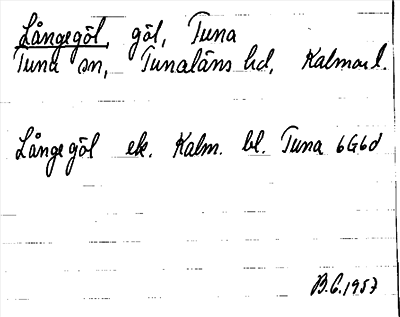 Långegöl, göl, Tuna
Tuna sn, Tunaläns hd, Kalmar l.
Långegöl ek. Kalm. bl. Tuna 6G6d
B.C. 1957